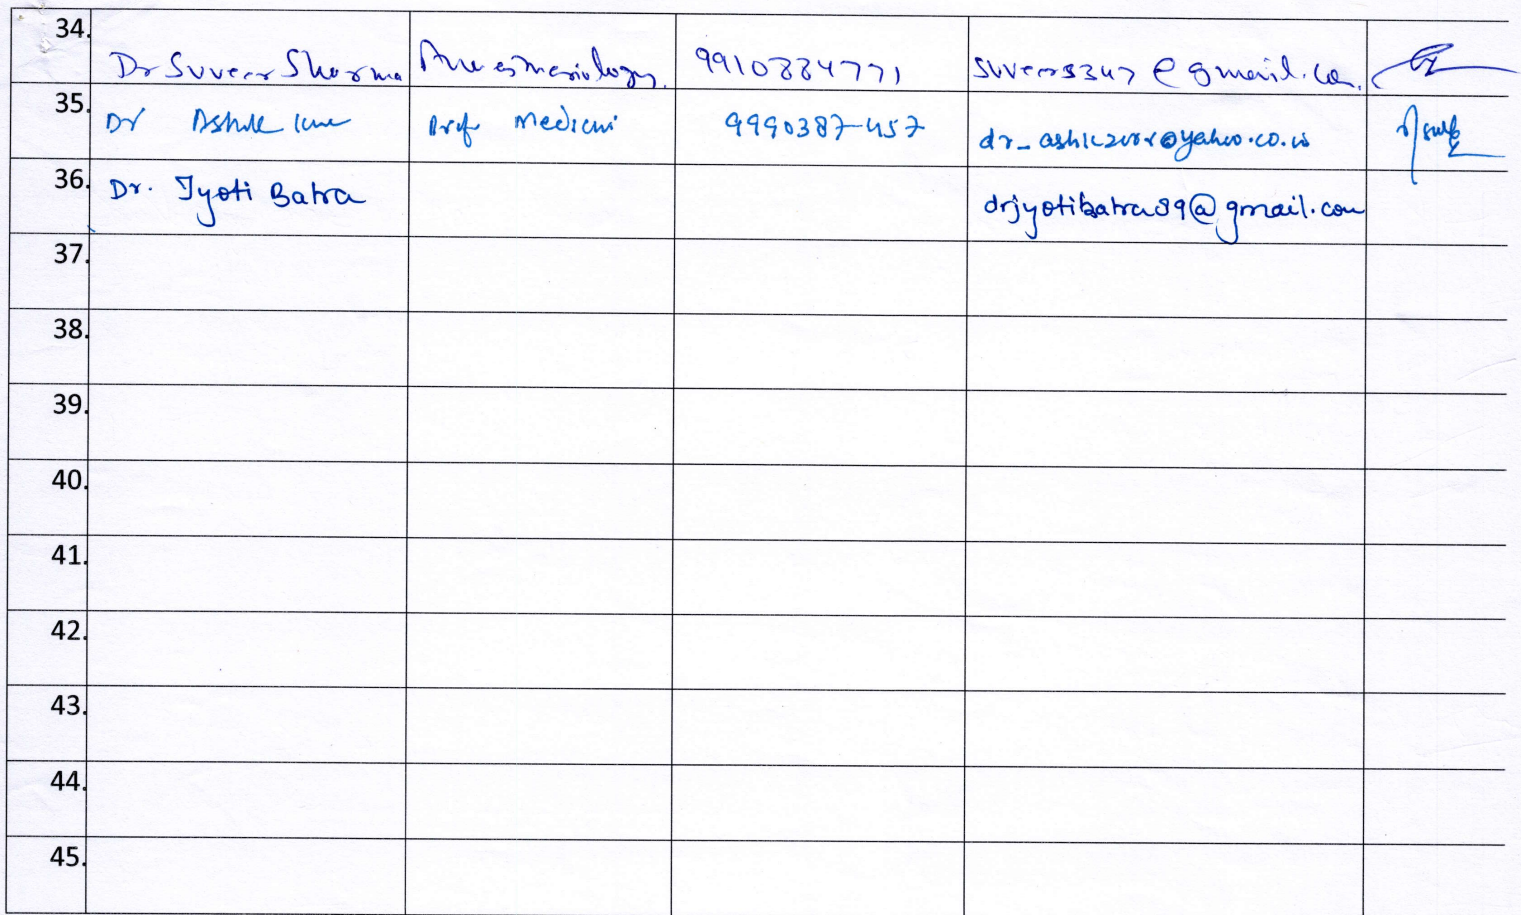 34. Dr Suveer Sharma Anaesthesiology. 9910884771 suveers347@gmail.co.
35. Dr Ashok Prof Medicini 9990387457
36. Dr. Jyoti Batra drjyotibatra89@gmail.com
37.
38.
39.
40.
41.
42.
43.
44.
45.